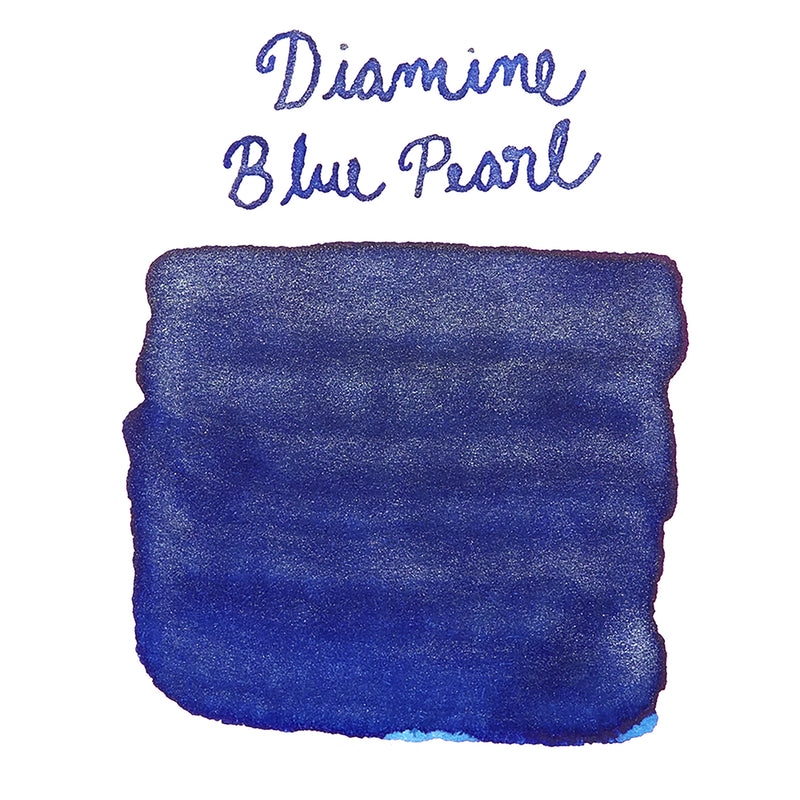 Diamine
Blue Pearl